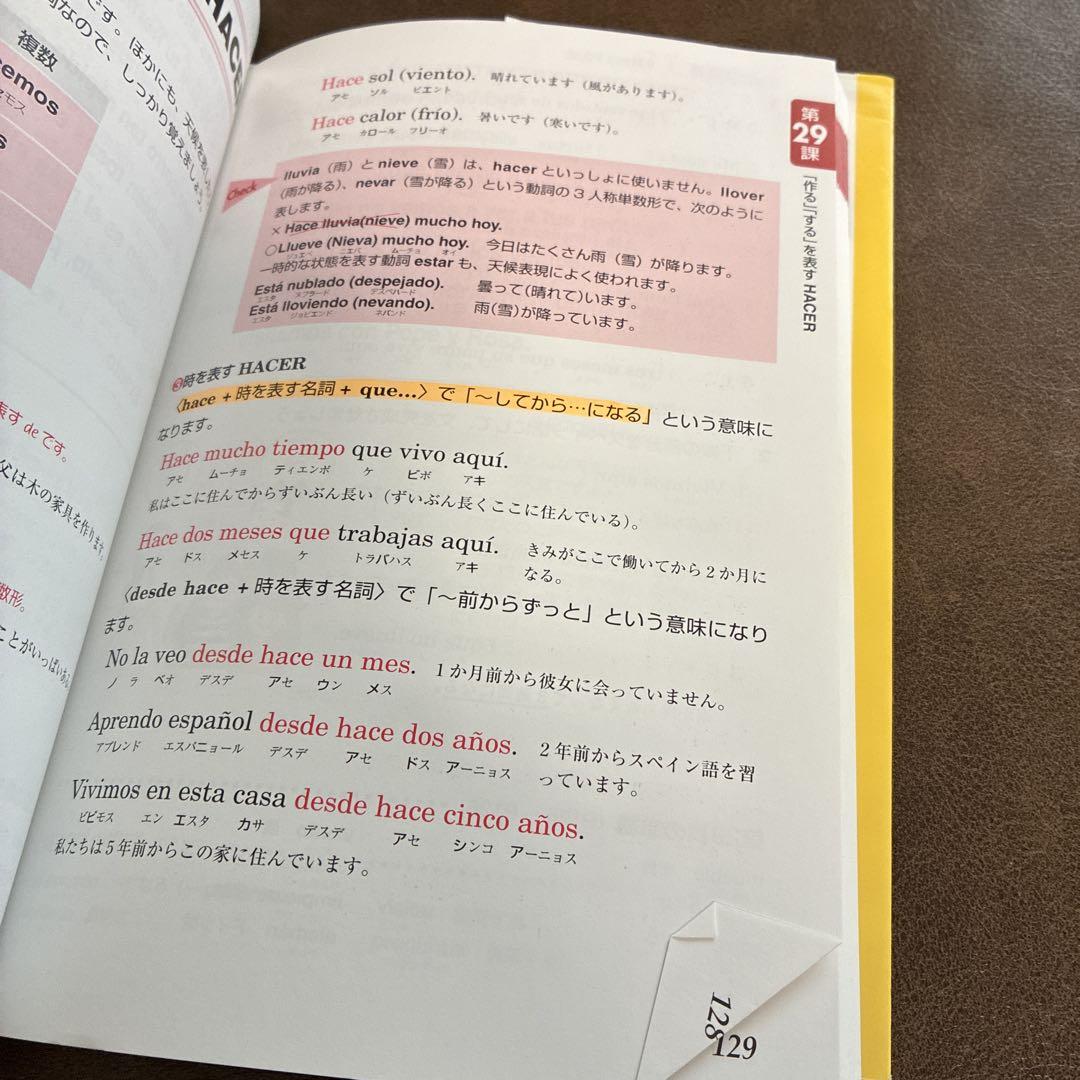 HACER
です。ほかにも、天候を表し
なので、しっかり覚えましょう。
複数
cemos
セモス
s
表すdeです。
父は木の家具を作ります。
数形。
ことがいっぱいある
Hace sol (viento). 晴れています（風があります）。
アセ ソル ビエント
Hace calor (frío). 暑いです（寒いです）。
アセ カロール フリーオ
Check
lluvia（雨）と nieve（雪）は、hacer といっしょに使いません。llover
（雨が降る）、nevar（雪が降る）という動詞の３人称単数形で、次のように
表します。
× Hace lluvia(nieve) mucho hoy.
○Llueve (Nieva) mucho hoy. 今日はたくさん雨（雪）が降ります。
ジュエベ ニエバ ムーチョ オイ
一時的な状態を表す動詞 estar も、天候表現によく使われます。
Está nublado (despejado). 曇って(晴れて)います。
エスタ ヌブラード デスペハード
Está lloviendo (nevando). 雨(雪)が降っています。
エスタ ジョビエンド ネバンド
❸時を表す HACER
〈hace + 時を表す名詞 + que…〉で「～してから…になる」という意味に
なります。
Hace mucho tiempo que vivo aquí.
アセ ムーチョ ティエンポ ケ ビボ アキ
私はここに住んでからずいぶん長い（ずいぶん長くここに住んでいる）。
Hace dos meses que trabajas aquí. きみがここで働いてから２か月に
アセ ドス メセス ケ トラバハス アキ
なる。
〈desde hace + 時を表す名詞〉で「～前からずっと」という意味になり
ます。
No la veo desde hace un mes. １か月前から彼女に会っていません。
ノ ラ ベオ デスデ アセ ウン メス
Aprendo español desde hace dos años. ２年前からスペイン語を習
アプレンド エスパニョール デスデ アセ ドス アーニョス
っています。
Vivimos en esta casa desde hace cinco años.
ビビモス エン エスタ カサ デスデ アセ シンコ アーニョス
私たちは５年前からこの家に住んでいます。
第
29
課
「作る」「する」を表す HACER
128
129